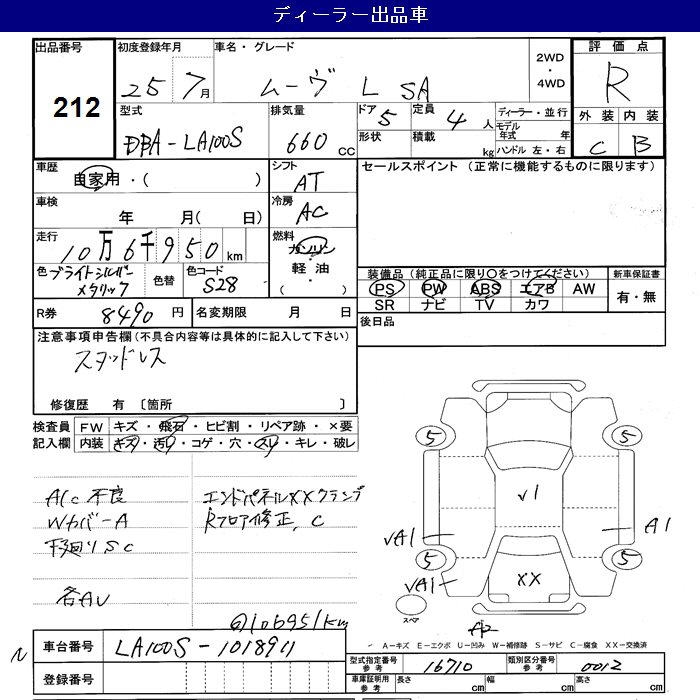 ディーラー出品車
出品番号 212
初度登録年月 25年 7月
車名・グレード ムーヴ L SA
2WD ・ 4WD
評価点 R
外装 C 内装 B
型式 DBA-LA100S
排気量 660 CC
ドア 5 定員 4人
形状 積載 kg
ディーラー・並行
モデル年式 年
ハンドル 左・右
車歴 自家用・( )
シフト AT
セールスポイント (正常に機能するものに限ります)
車検 年 月( 日)
冷房 AC
走行 10万6千950km
燃料 ガソリン・軽油・( )
色 ブライトシルバーメタリック
色替
色コード S28
装備品(純正品に限り○をつけてください)
PS PW ABS エアB AW
SR ナビ TV カワ
新車保証書 有・無
R券 8490円
名変期限 月 日
後日品
注意事項申告欄(不具合内容等は具体的に記入して下さい)
スタッドレス
修復歴 有 〔箇所 〕
検査員記入欄
FW キズ・飛石・ヒビ割・リペア跡・×要
内装 キズ・汚れ・コゲ・穴・スレ・キレ・破レ
A/C不良
エンドパネルXXクランプ
Wカバー A
Rフロア修正、C
下廻りSC
各AU
@106951km
5 5
√1
√A1 A1
5 5
√A1
XX
スペア
A-キズ E-エクボ U-凹み W-補修跡 S-サビ C-腐食 XX-交換済
車台番号 LA100S-1018911
登録番号
型式指定番号 参考 16710
類別区分番号 参考 0012
車庫証明用 参考 長さ cm 幅 cm 高さ cm